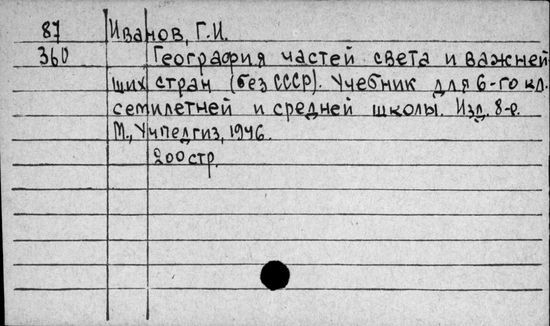 87 Иванов, Г.И.
360 География частей света и важней
ших стран (без СССР). Учебник для 6-го кл.
семилетней и средней школы. Изд. 8-е.
М., Учпедгиз, 1946.
200 стр.